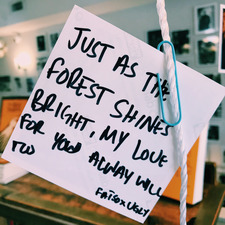 JUST AS THE
FOREST SHINES
BRIGHT, MY LOVE
FOR YOU ALWAY WILL
TOO